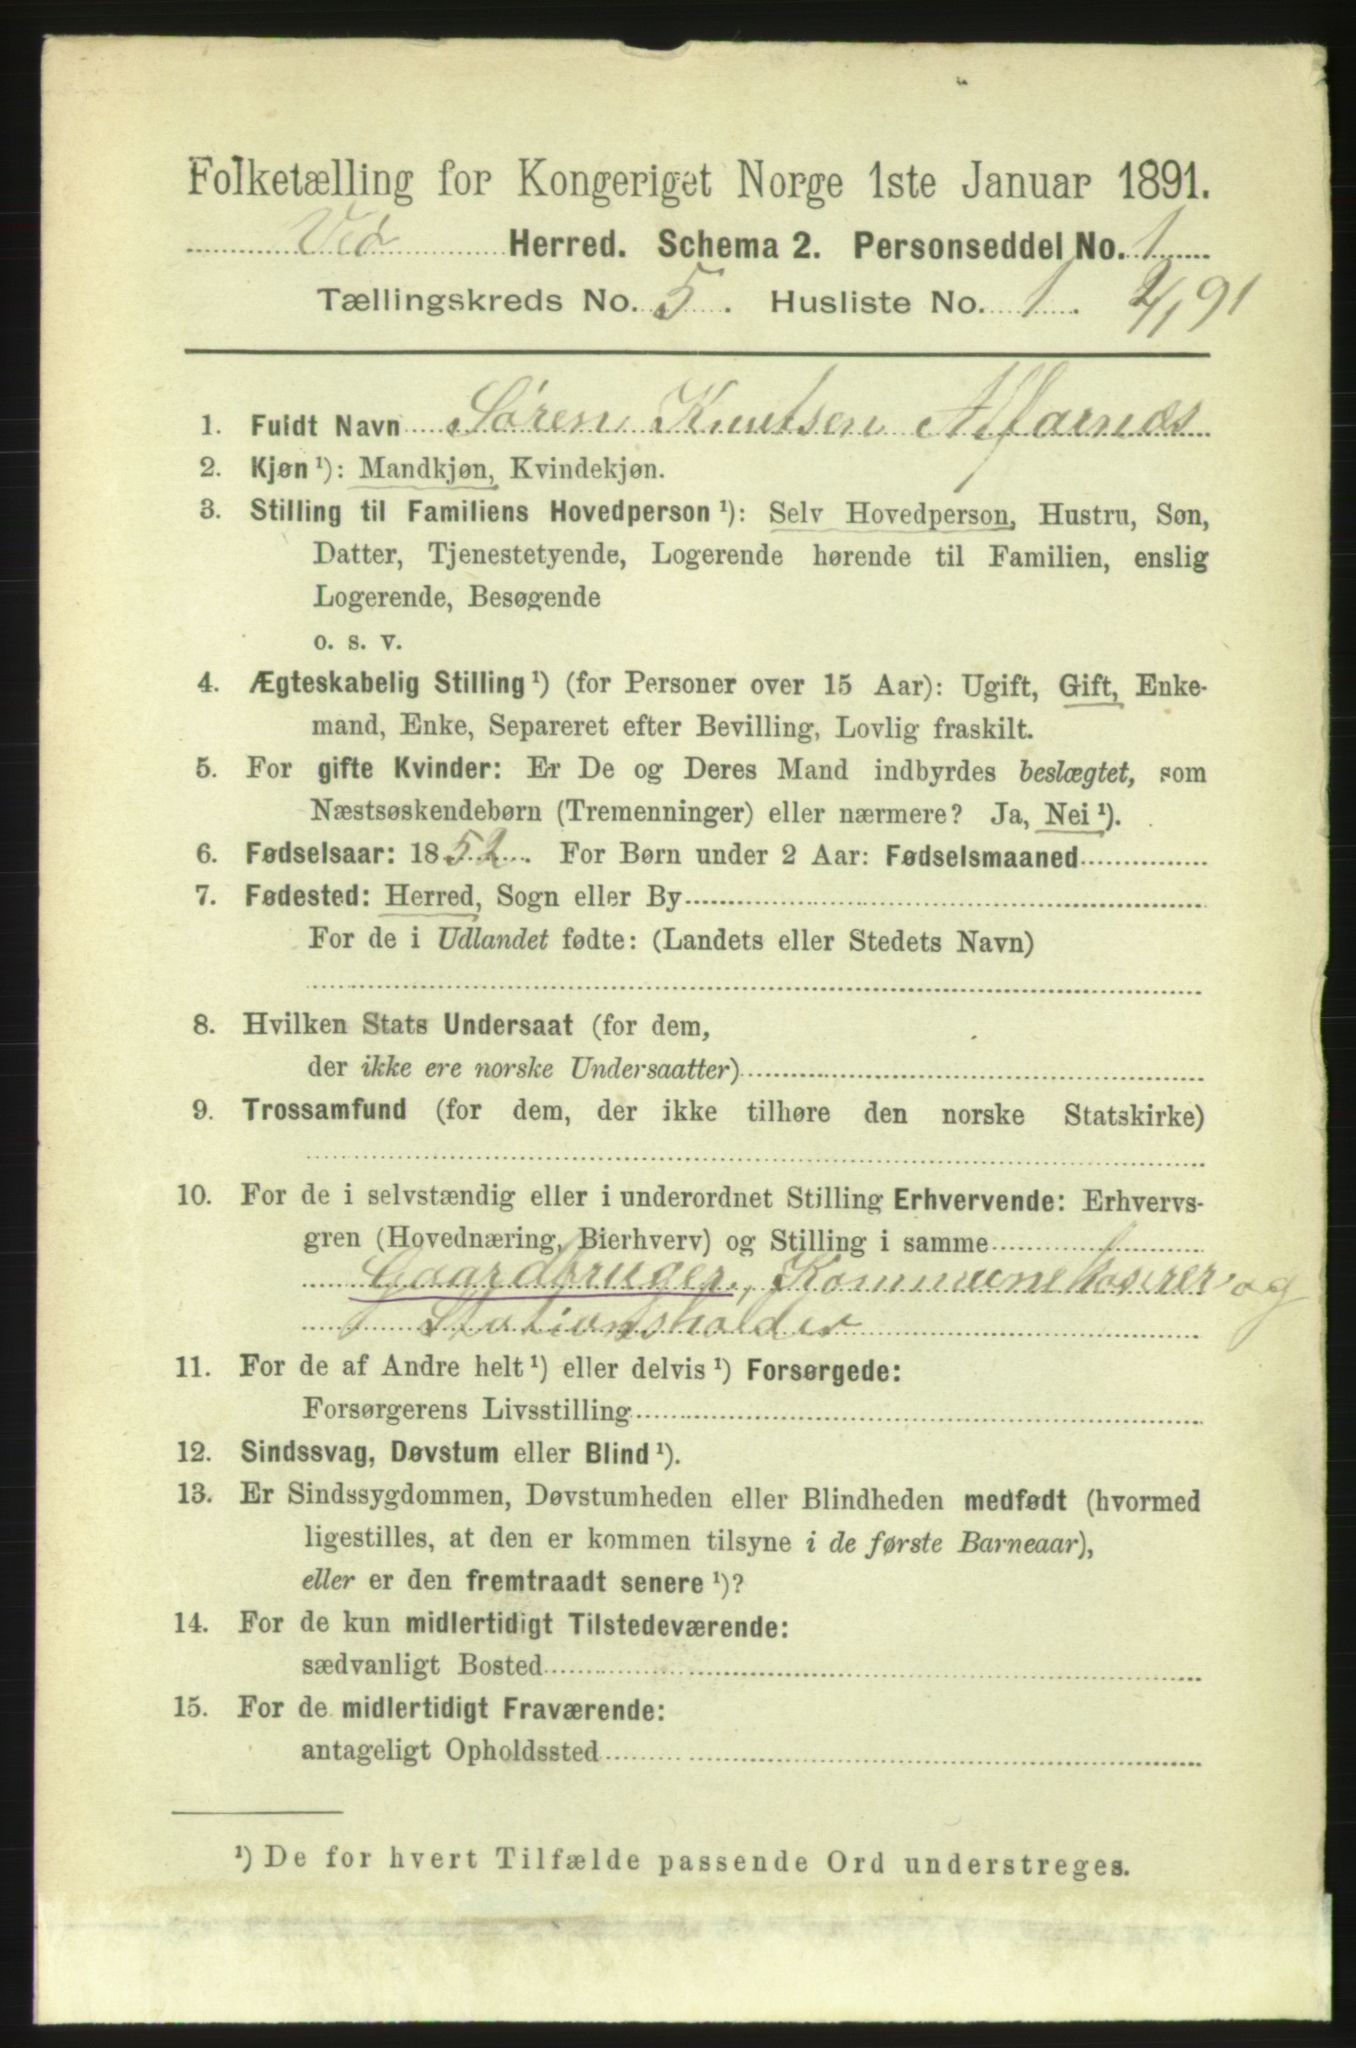 Folketælling for Kongeriget Norge 1ste Januar 1891.
Veø Herred. Schema 2. Personseddel No. 1
Tællingskreds No. 5. Husliste No. 1. 2/1 91
1. Fuldt Navn Søren Knutsen Alfarnæs
2. Kjøn ¹): Mandkjøn, Kvindekjøn.
3. Stilling til Familiens Hovedperson ¹): Selv Hovedperson, Hustru, Søn,
Datter, Tjenestetyende, Logerende hørende til Familien, enslig
Logerende, Besøgende
o. s. v.
4. Ægteskabelig Stilling ¹) (for Personer over 15 Aar): Ugift, Gift, Enke-
mand, Enke, Separeret efter Bevilling, Lovlig fraskilt.
5. For gifte Kvinder: Er De og Deres Mand indbyrdes beslægtet, som
Næstsøskendebørn (Tremenninger) eller nærmere? Ja, Nei ¹).
6. Fødselsaar: 1852. For Børn under 2 Aar: Fødselsmaaned
7. Fødested: Herred, Sogn eller By
For de i Udlandet fødte: (Landets eller Stedets Navn)
8. Hvilken Stats Undersaat (for dem,
der ikke ere norske Undersaatter)
9. Trossamfund (for dem, der ikke tilhøre den norske Statskirke)
10. For de i selvstændig eller i underordnet Stilling Erhvervende: Erhvervs-
gren (Hovednæring, Bierhverv) og Stilling i samme
Gaardbruger, Kommunekaserer og
Stationsholder
11. For de af Andre helt ¹) eller delvis ¹) Forsørgede:
Forsørgerens Livsstilling
12. Sindssvag, Døvstum eller Blind ¹).
13. Er Sindssygdommen, Døvstumheden eller Blindheden medfødt (hvormed
ligestilles, at den er kommen tilsyne i de første Barneaar),
eller er den fremtraadt senere ¹)?
14. For de kun midlertidigt Tilstedeværende:
sædvanligt Bosted
15. For de midlertidigt Fraværende:
antageligt Opholdssted
¹) De for hvert Tilfælde passende Ord understreges.